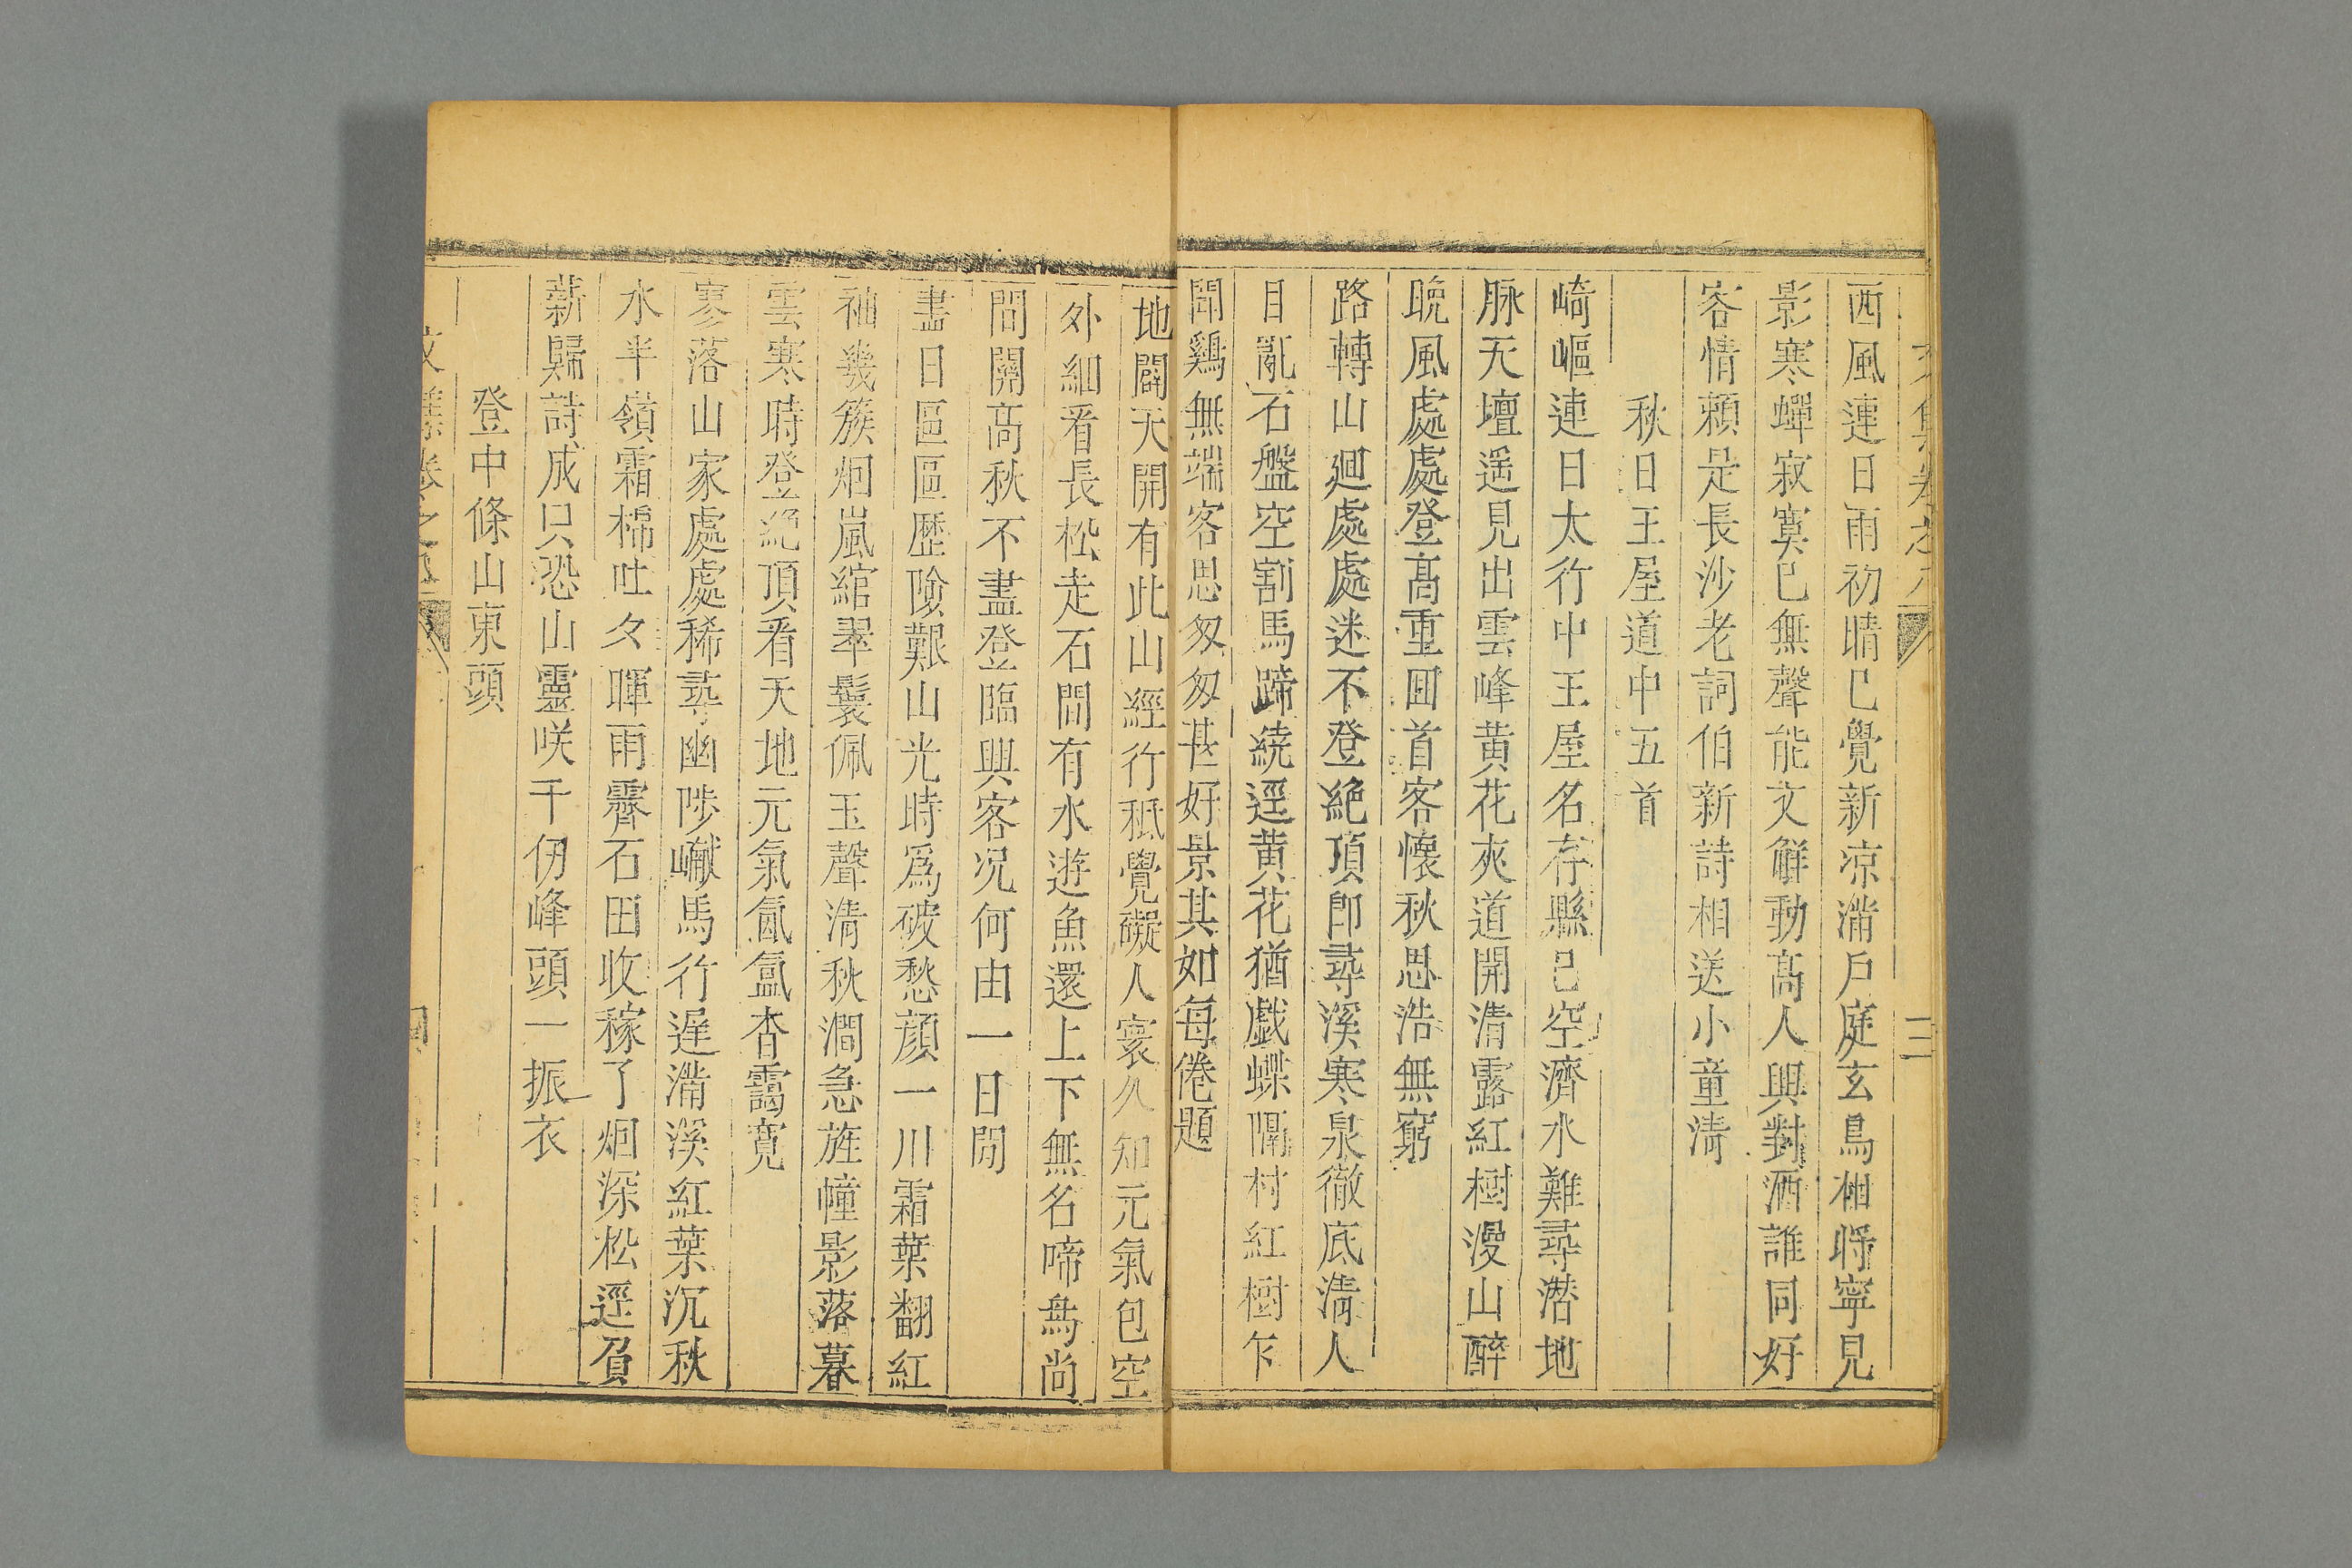 西風連日雨初晴已覺新凉滿戶庭玄鳥相將寧見
影寒蟬寂寞已無聲能文觧動高人興對酒誰同好
客情頼是長沙老詞伯新詩相送小童淸
秋日王屋道中五首
崎嶇連日太行中王屋名存縣已空濟水難尋潜地
脉天壇遥見出雲峰黄花夾道開清露紅樹漫山醉
晩風處處登髙重囬首客懷秋思浩無窮
路轉山廻處處迷不登絶頂即尋溪寒泉徹底清人
目亂石盤空割馬蹄繞逕黄花猶戯蝶隔村紅樹乍
聞鷄無端客思匆匆甚好景其如每倦題
地闢天開有此山經行秪覺礙人寰久知元氣包空
外細看長松走石間有水遊魚還上下無名啼鳥尚
間關高秋不盡登臨興客况何由一日閒
盡日區區歷險艱山光時爲破愁顔一川霜葉翻紅
袖幾簇烟嵐綰翠鬟佩玉聲清秋澗急旌幢影落暮
雲寒時登絶頂看天地元氣氤氲杳靄寛
寥落山家處處稀尋幽陟巘馬行遲滿溪紅葉沉秋
水半嶺霜棉吐夕暉雨霽石田收稼了烟深松逕負
薪歸詩成只恐山靈咲千仞峰頭一振衣
登中條山東頭